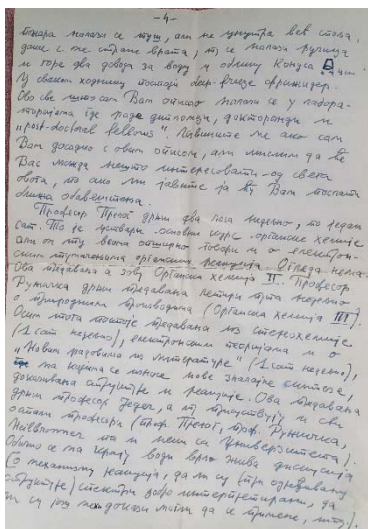 -4-
налази се туш, али не унутра већ споља,
даље с ње стране врата, те се налази ручица
и горе два довода за воду у облику конуса
У сваком ходнику постоји deep-freeze фрижидер.
Ово све што сам Вам описао налази се у лабора-
торијама где раде дипломци, докторанди и
"post-doctoral fellows". Извините ме ако сам
Вам досадио с овим описом, али мислим да ће
Вас можда нешто интересовати од свега
овога, па ако ми јавите ја ћу Вам послати
обавештења.
Професор Прелог држи два пута недељно, по један
сат. То је уствари основни курс органске хемије
али он ту веома опширно говори и о електрон-
ским тумачењима органских реакција. Огледа нема.
Ова предавања а зову Органска хемија II. Професор
Ружичка држи предавања четири пута недељно
о природним производима (Органска хемија III).
Осим тога постоје предавања из стереохемије
(1 сат недељно), електронским теоријама и о
"Новим радовима из литературе" (1 сат недељно),
на којима се износе нове значајне синтезе,
доказивања структуре и реакције. Ова предавања
држи професор Јегер, а њему присуствују и сви
остали професори (проф. Прелог, проф. Ружичка,
Heilbronner па и неки са Универзитета).
Обично се на крају води врло жива дискусија
(о механизму реакција, да ли су при одређивању
структуре) спектри добро интерпретирани, да
ли су још неки докази могли да се примене, итд.).